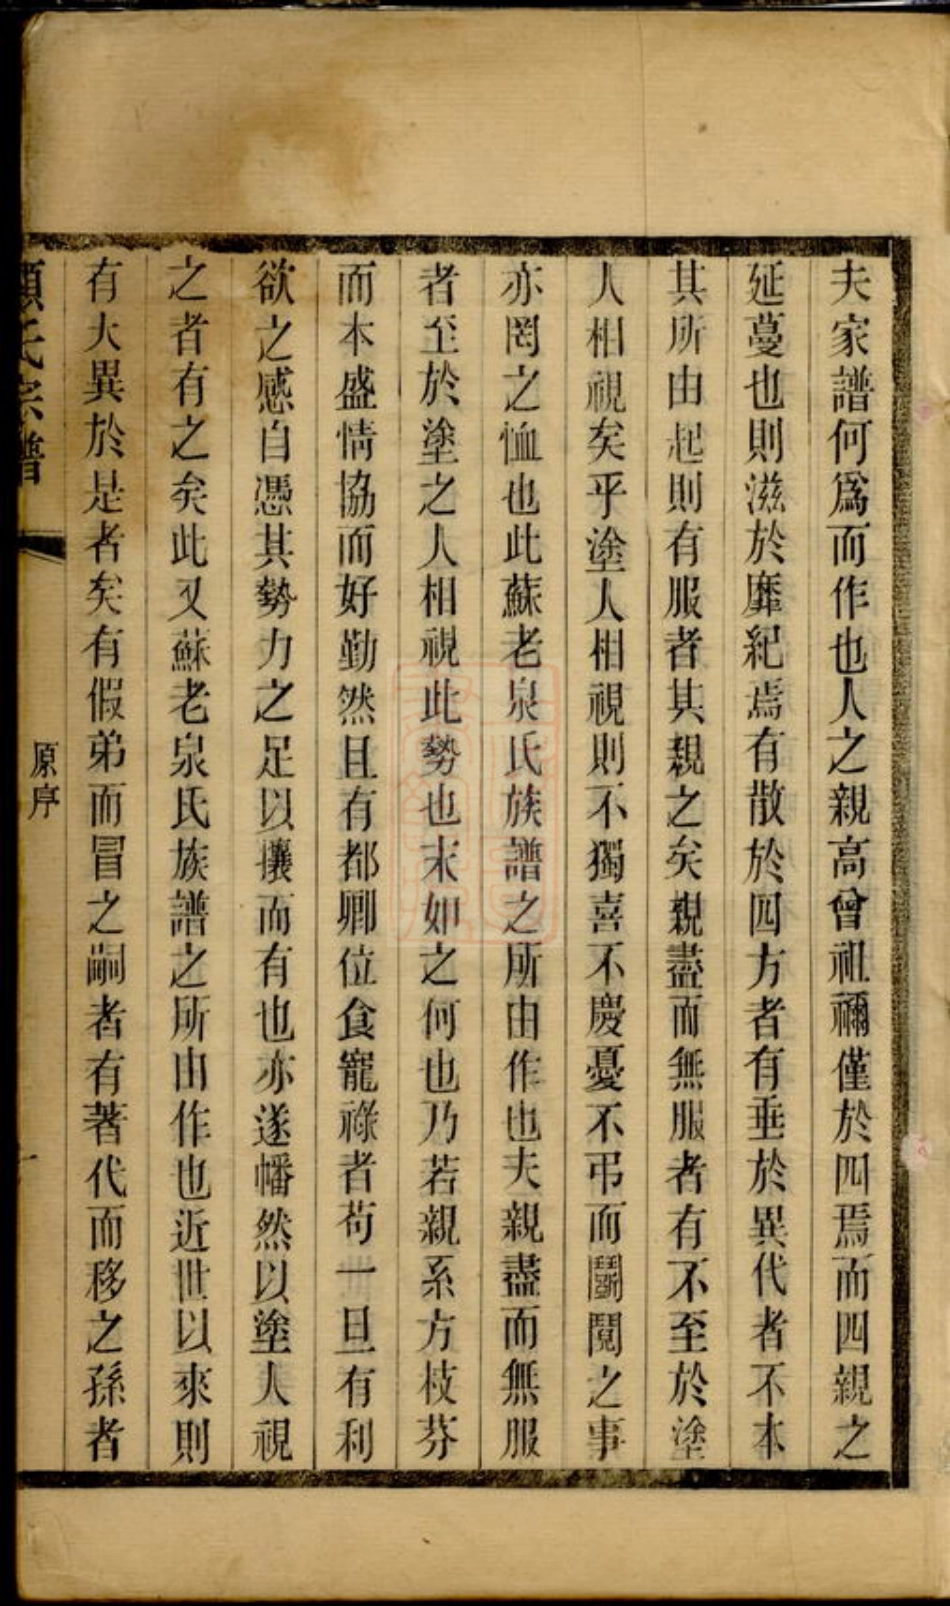 夫家譜何爲而作也人之親高曾祖禰僅於四焉而四親之
延蔓也則滋於靡紀焉有散於四方者有垂於異代者不本
其所由起則有服者其親之矣親盡而無服者有不至於塗
人相視矣乎塗人相視則不獨喜不慶憂不弔而鬭鬩之事
亦罔之恤也此蘇老泉氏族譜之所由作也夫親盡而無服
者至於塗之人相視此勢也末如之何也乃若親系方枝芬
而本盛情協而好勤然且有都卿位食寵祿者苟一旦有利
欲之感自憑其勢力之足以攘而有也亦遂幡然以塗人視
之者有之矣此又蘇老泉氏族譜之所由作也近世以來則
有大異於是者矣有假弟而冒之嗣者有著代而移之孫者
氏宗譜
原序
一